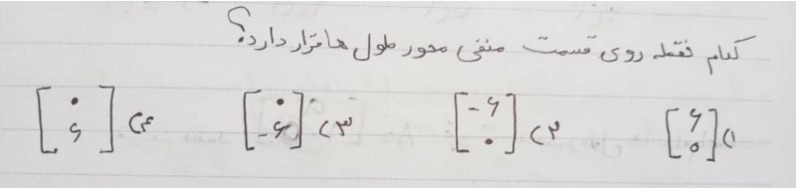 کدام نقطه روی قسمت منفی محور طول ها قرار دارد؟
۱) [۶ ۰] ۲) [-۶ ۰] ۳) [۰ -۶] ۴) [۰ ۶]